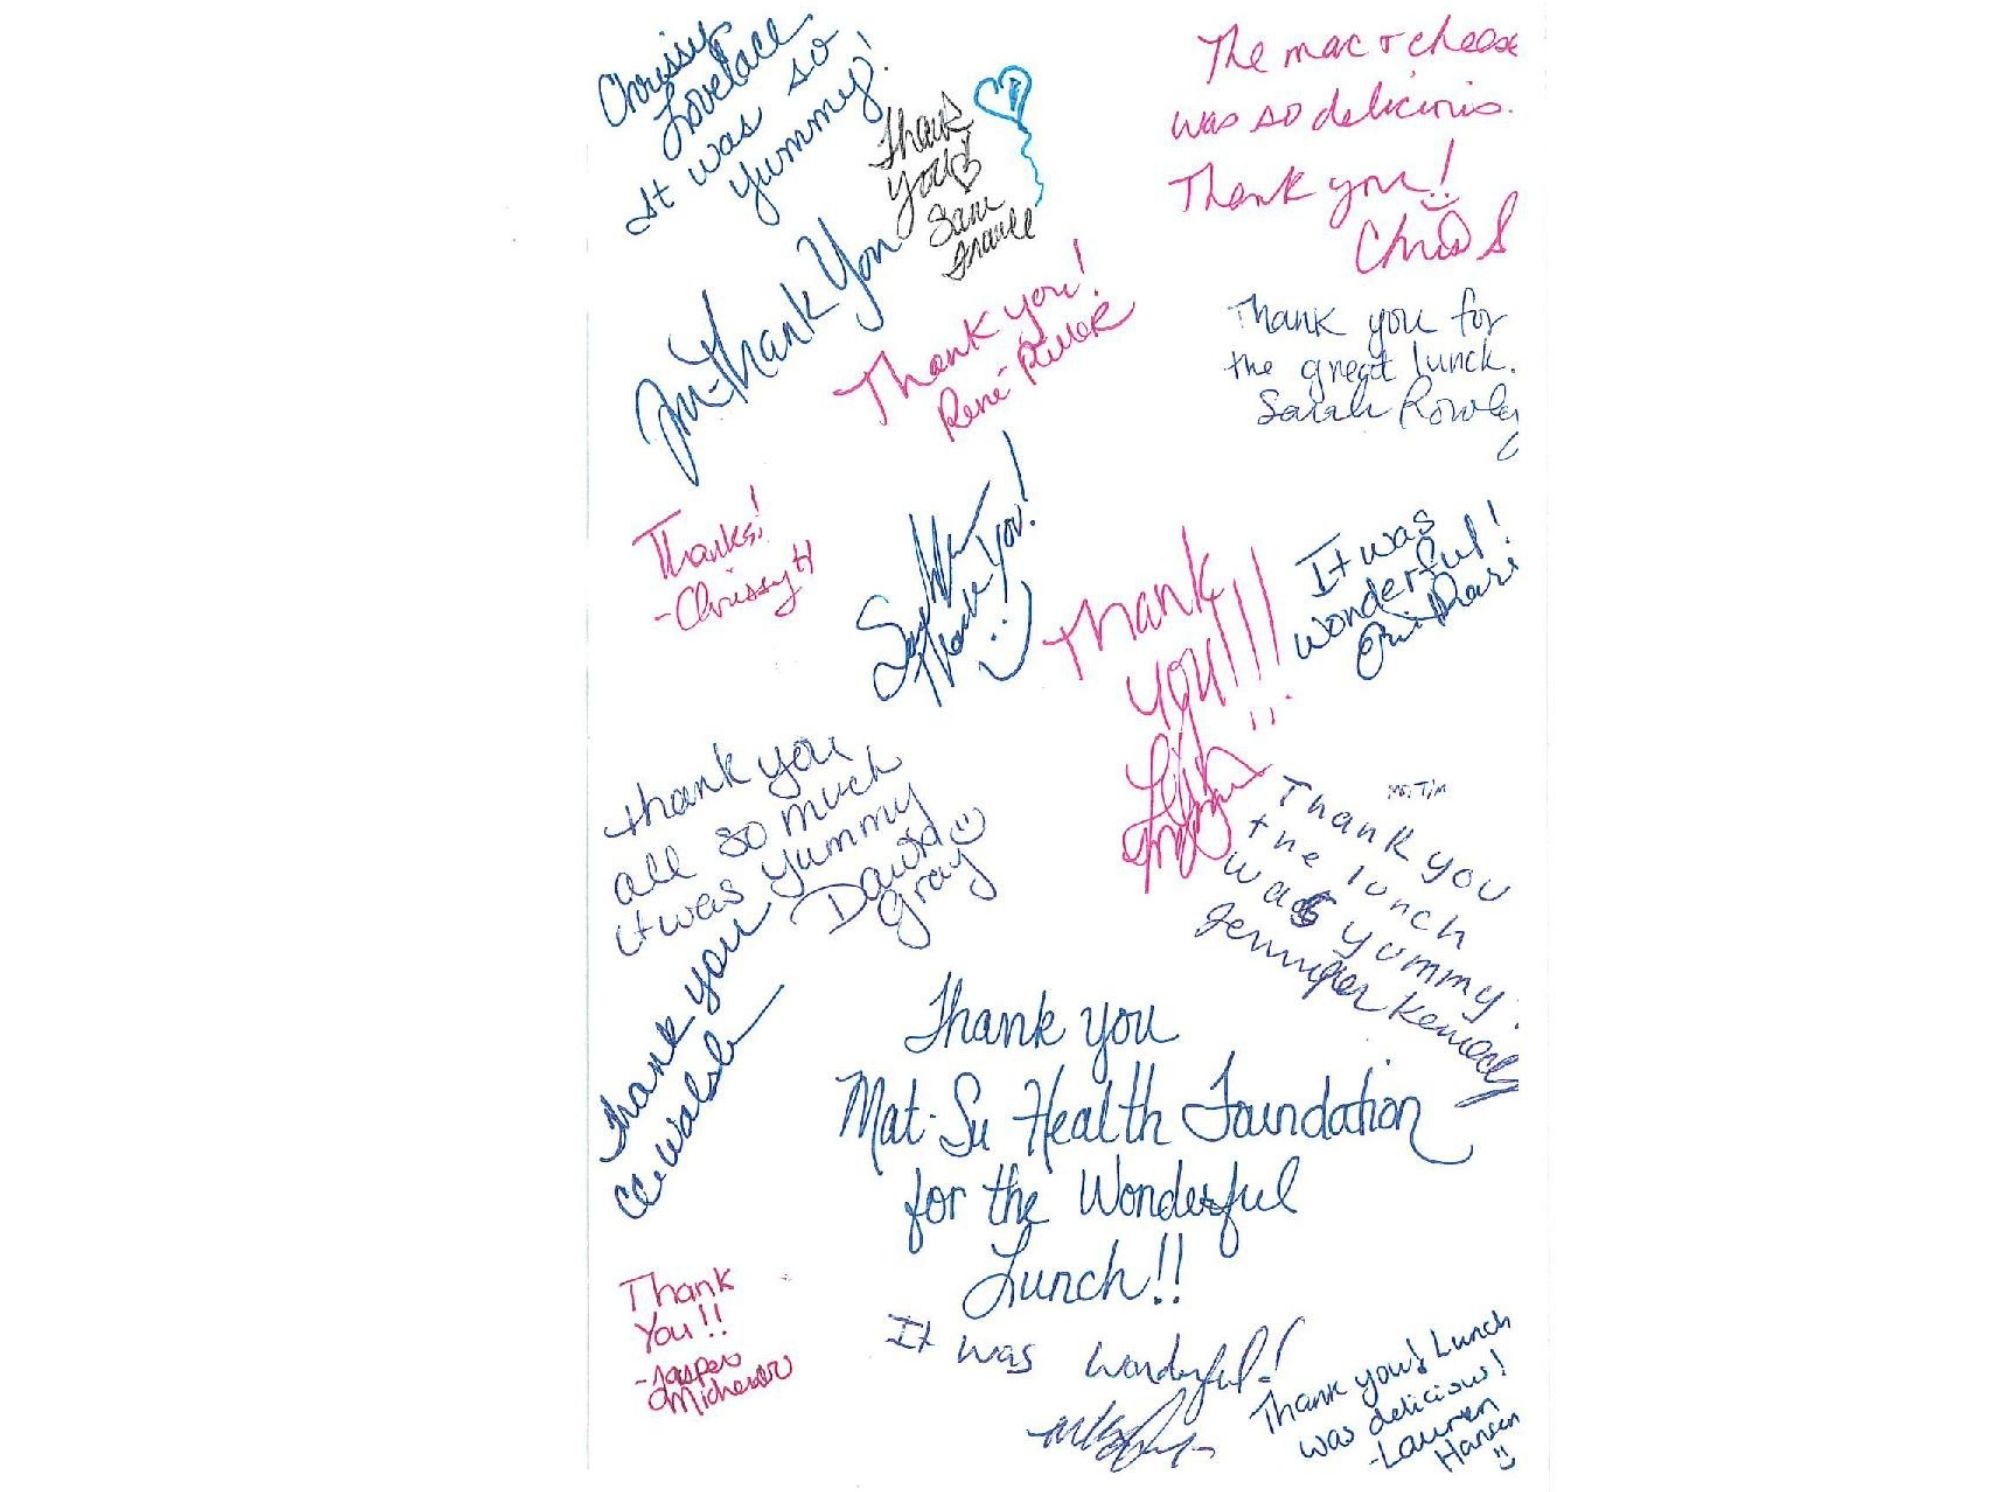 Chrissy
Lovelace
It was so
yummy!
Thank
you!
Sam
The mac & cheese
was so delicious.
Thank you!
Chris S
Thank You
Thank you!
René
Thank you for
the great lunch.
Sarah Rowley
Thanks!
-Chrissy H
Thank You!
Thank
you!!!
It was
wonderful!
thank you
all so much
it was yummy
Dawn
Gray
Thank you
the lunch
was yummy.
Jennifer Kennedy
Thank you
Walsh
Thank you
Mat-Su Health Foundation
for the Wonderful
Lunch!!
Thank
You!!
-Jasper
It was wonderful!
Thank you! Lunch
was delicious!
-Lauren
Hansen